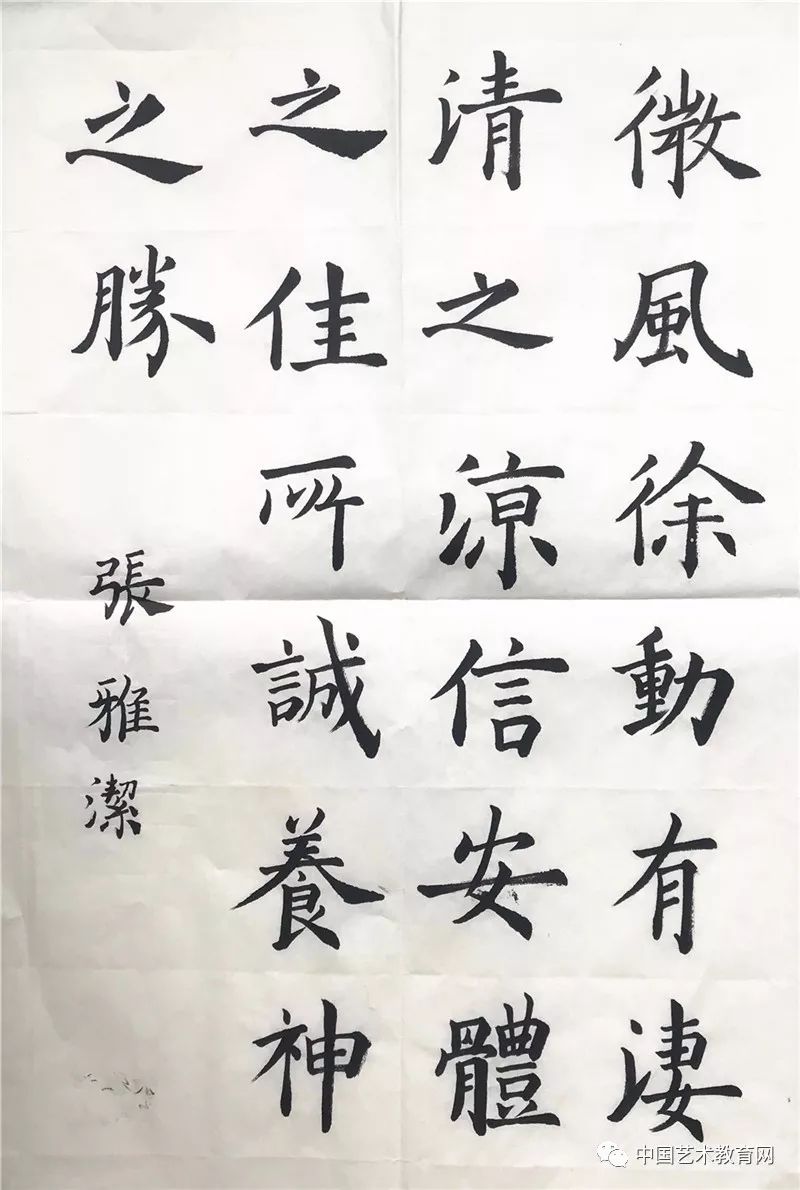 微風徐動有淒
清之涼信安體
之佳所誠養神
之勝
張雅潔
中国艺术教育网